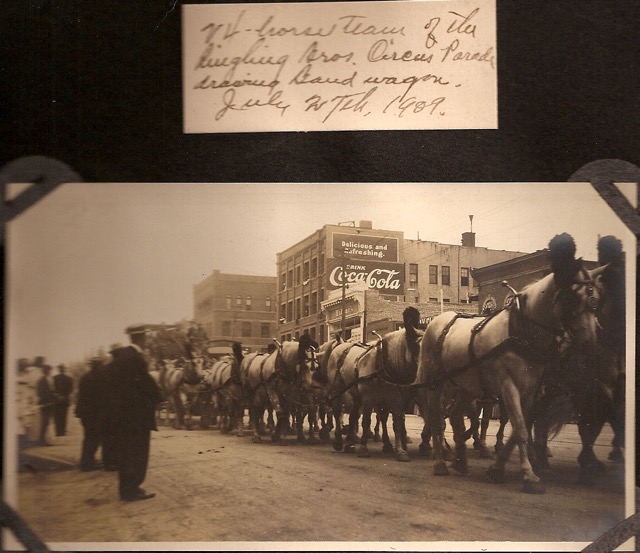 24-horse team of the
Ringling Bros. Circus Parade
drawing band wagon.
July 27th, 1909.
Delicious and
Refreshing.
DRINK
Coca-Cola